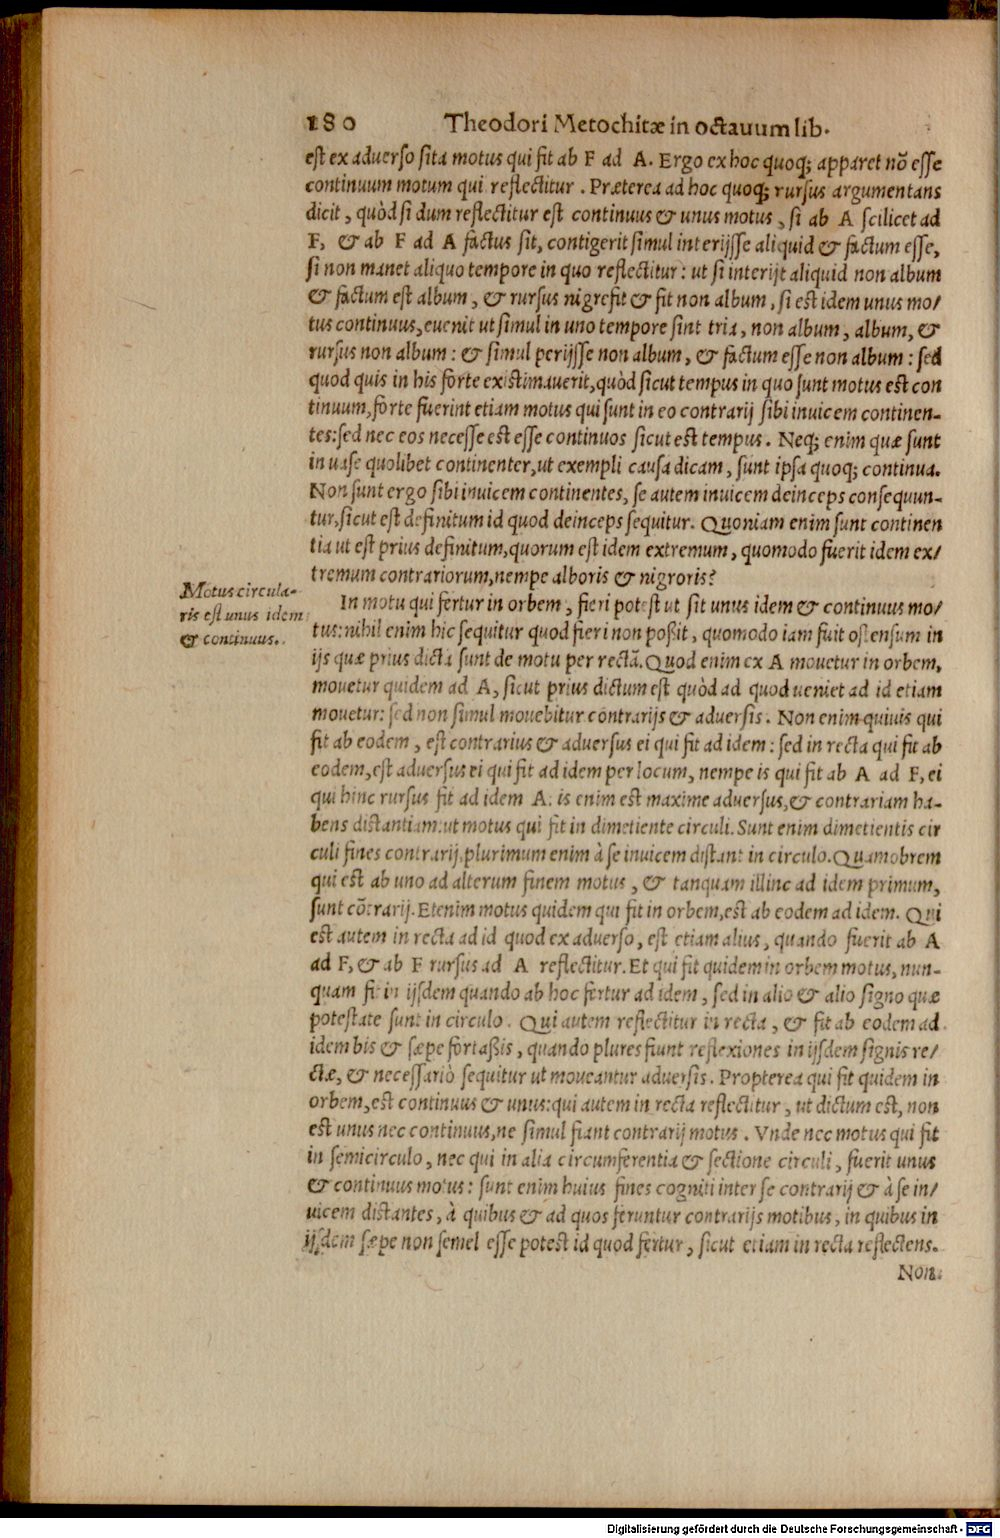 180 Theodori Metochitæ in octauum lib.
est ex aduerso sita motus qui fit ab F ad A. Ergo ex hoc quoq; apparet nõ esse
continuum motum qui reflectitur. Præterea ad hoc quoq; rursus argumentans
dicit, quòd si dum reflectitur est continuus & unus motus, si ab A scilicet ad
F, & ab F ad A factus sit, contigerit simul interijsse aliquid & factum esse,
si non manet aliquo tempore in quo reflectitur: ut si interijt aliquid non album
& factum est album, & rursus nigrefit & fit non album, si est idem unus mo/
tus continuus, euenit ut simul in uno tempore sint tria, non album, album, &
rursus non album: & simul perijsse non album, & factum esse non album: sed
quod quis in his forte existimauerit, quòd sicut tempus in quo sunt motus est con
tinuum, forte fuerint etiam motus qui sunt in eo contrarij sibi inuicem continen-
tes: sed nec eos necesse est esse continuos sicut est tempus. Neq; enim quæ sunt
in uase quolibet continenter, ut exempli causa dicam, sunt ipsa quoq; continua.
Non sunt ergo sibi inuicem continentes, se autem inuicem deinceps consequun-
tur, sicut est definitum id quod deinceps sequitur. Quoniam enim sunt continen
tia ut est prius definitum, quorum est idem extremum, quomodo fuerit idem ex/
tremum contrariorum, nempe alboris & nigroris?
Motus circula-
ris est unus idem
& continuus.
In motu qui fertur in orbem, fieri potest ut sit unus idem & continuus mo/
tus: nihil enim hic sequitur quod fieri non poßit, quomodo iam fuit ostensum in
ijs quæ prius dicta sunt de motu per rectã. Quod enim ex A mouetur in orbem,
mouetur quidem ad A, sicut prius dictum est quòd ad quod ueniet ad id etiam
mouetur: sed non simul mouebitur contrarijs & aduersis. Non enim quiuis qui
fit ab eodem, est contrarius & aduersus ei qui fit ad idem: sed in recta qui fit ab
eodem, est aduersus ei qui fit ad idem per locum, nempe is qui fit ab A ad F, ei
qui hinc rursus fit ad idem A. is enim est maxime aduersus, & contrariam ha-
bens distantiam: ut motus qui fit in dimetiente circuli. Sunt enim dimetientis cir
culi fines contrarij. plurimum enim à se inuicem distant in circulo. Quamobrem
qui est ab uno ad alterum finem motus, & tanquam illinc ad idem primum,
sunt cõtrarij. Etenim motus quidem qui fit in orbem, est ab eodem ad idem. Qui
est autem in recta ad id quod ex aduerso, est etiam alius, quando fuerit ab A
ad F, & ab F rursus ad A reflectitur. Et qui fit quidem in orbem motus, nun-
quam fit in ijsdem quando ab hoc fertur ad idem, sed in alio & alio signo quæ
potestate sunt in circulo. Qui autem reflectitur in recta, & fit ab eodem ad
idem bis & sæpe fortaßis, quando plures fiunt reflexiones in ijsdem signis re/
ctæ, & necessariò sequitur ut moueantur aduersis. Propterea qui fit quidem in
orbem, est continuus & unus: qui autem in recta reflectitur, ut dictum est, non
est unus nec continuus, ne simul fiant contrarij motus. Vnde nec motus qui fit
in semicirculo, nec qui in alia circumferentia & sectione circuli, fuerit unus
& continuus motus: sunt enim huius fines cogniti inter se contrarij & à se in/
uicem distantes, à quibus & ad quos feruntur contrarijs motibus, in quibus in
ijsdem sæpe non semel esse potest id quod fertur, sicut etiam in recta reflectens.
Non
Digitalisierung gefördert durch die Deutsche Forschungsgemeinschaft - DFG